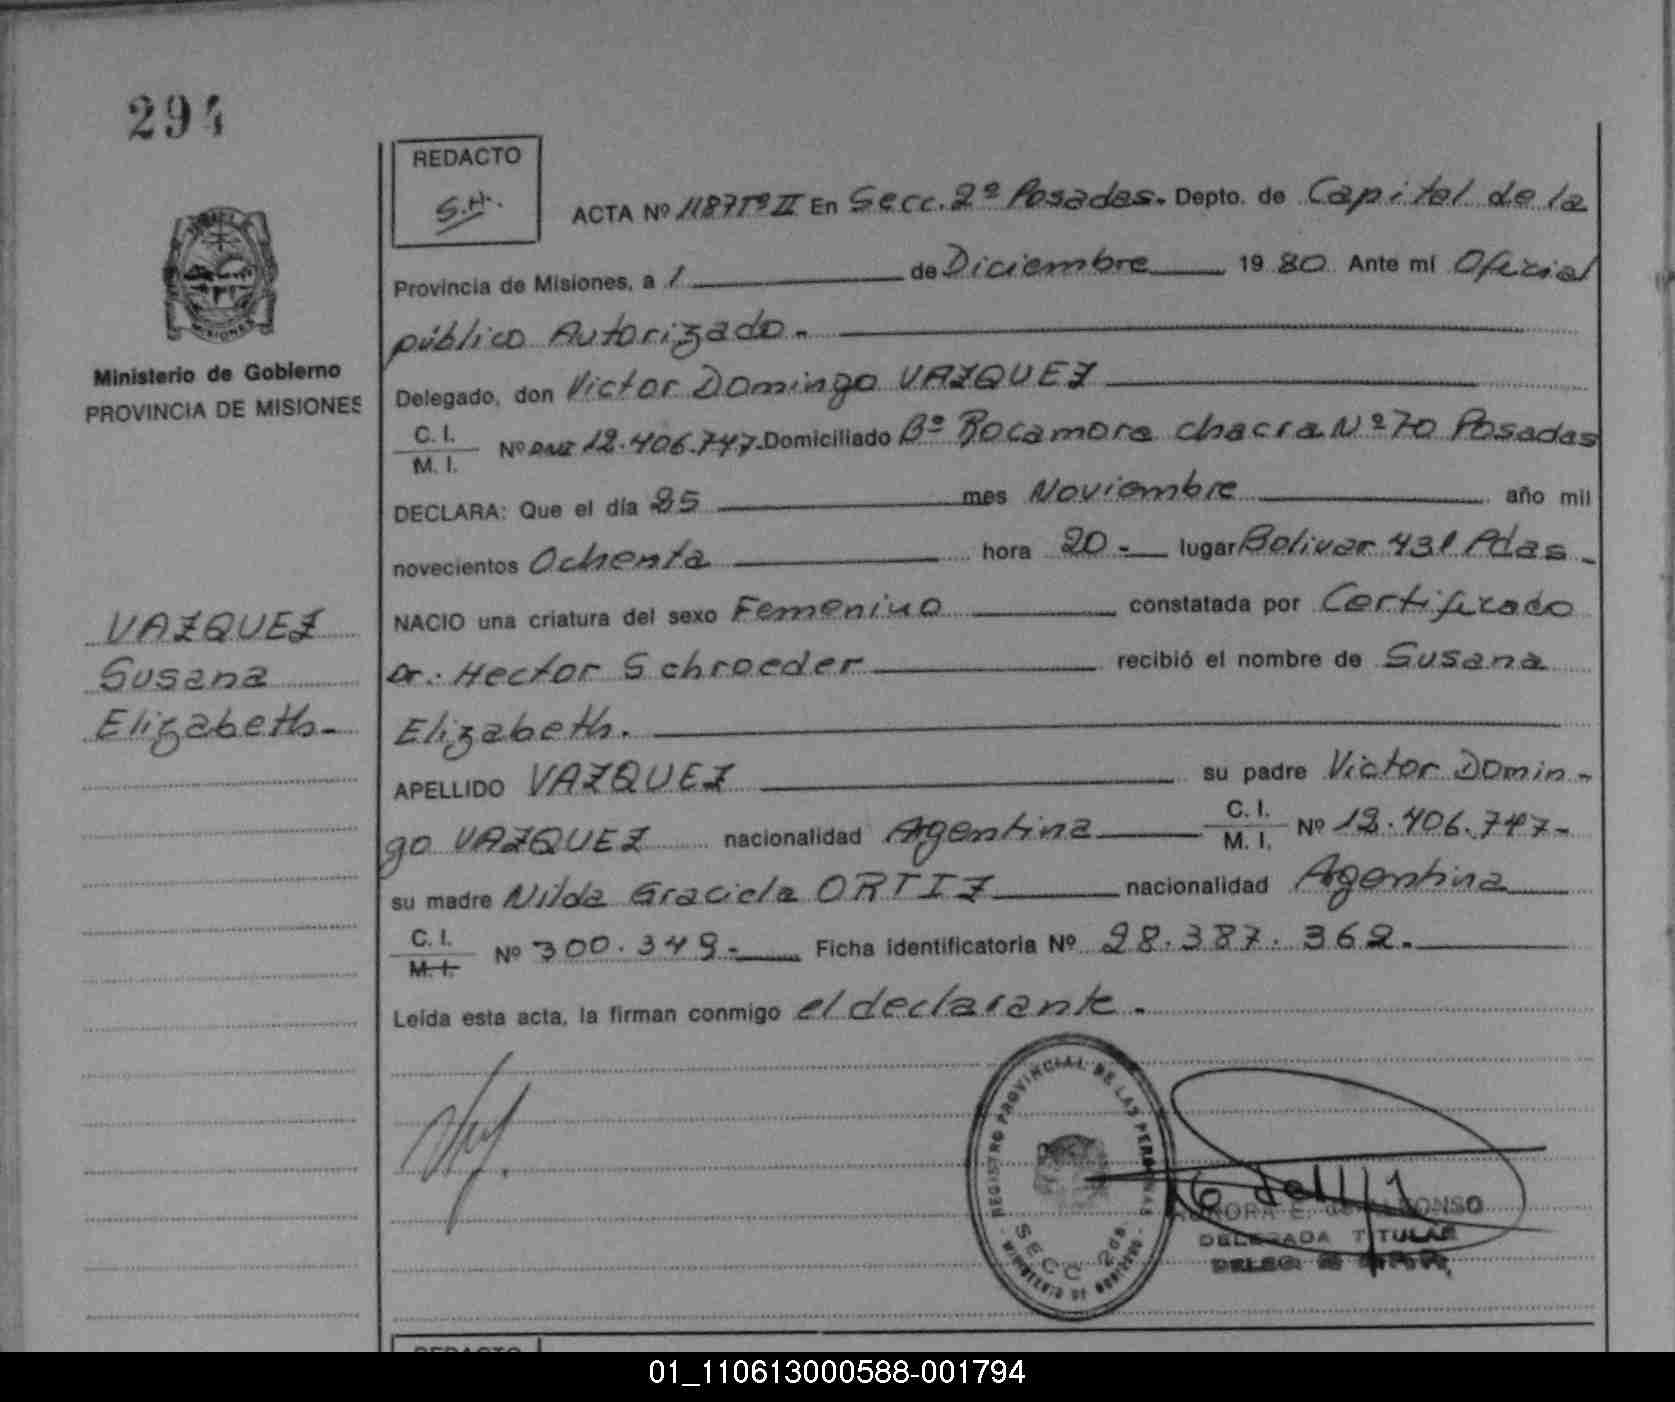 294
REDACTO
S.H.
ACTA Nº 1187Tº II En Secc. 2º Posadas. Depto. de Capital de la
Provincia de Misiones, a 1 de Diciembre 19 80 Ante mí Oficial
público Autorizado.
MISIONES
Ministerio de Gobierno
PROVINCIA DE MISIONES
Delegado, don Victor Domingo VAZQUEZ
C. I.
M. I.
Nº DNI 12.406.747. Domiciliado Bº Rocamora chacra Nº 70 Posadas
DECLARA: Que el día 25 mes Noviembre año mil
novecientos Ochenta hora 20.- lugar Bolivar 431 Pdas.
NACIO una criatura del sexo Femenino constatada por Certificado
VAZQUEZ
Susana
Elizabeth.-
Dr.: Hector Schroeder recibió el nombre de Susana
Elizabeth.
APELLIDO VAZQUEZ su padre Victor Domin-
go VAZQUEZ nacionalidad Argentina C. I. M. I. Nº 12.406.747-
su madre Nilda Graciela ORTIZ nacionalidad Argentina
C. I.
M. I.
Nº 300.349.- Ficha identificatoria Nº 28.387.362.
Leída esta acta, la firman conmigo el declarante.
REGISTRO PROVINCIAL DE LAS PERSONAS
SECC 2da
DELEGADA TITULAR
REDACTO
01_110613000588-001794